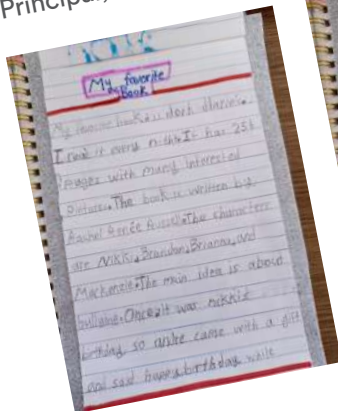 Principal,
My favorite
Book
My favorite book is dork diaries.
I read it every night. It has 256
Pages with many interested
Pictures. The book is written by
Rachel Renée Russell. The characters
are Nikki, Brandon, Brianna, and
Mackenzie. The main idea is about
bullying. Once it was nikkis
birthday so a girl came with a gift
and said happy birthday while